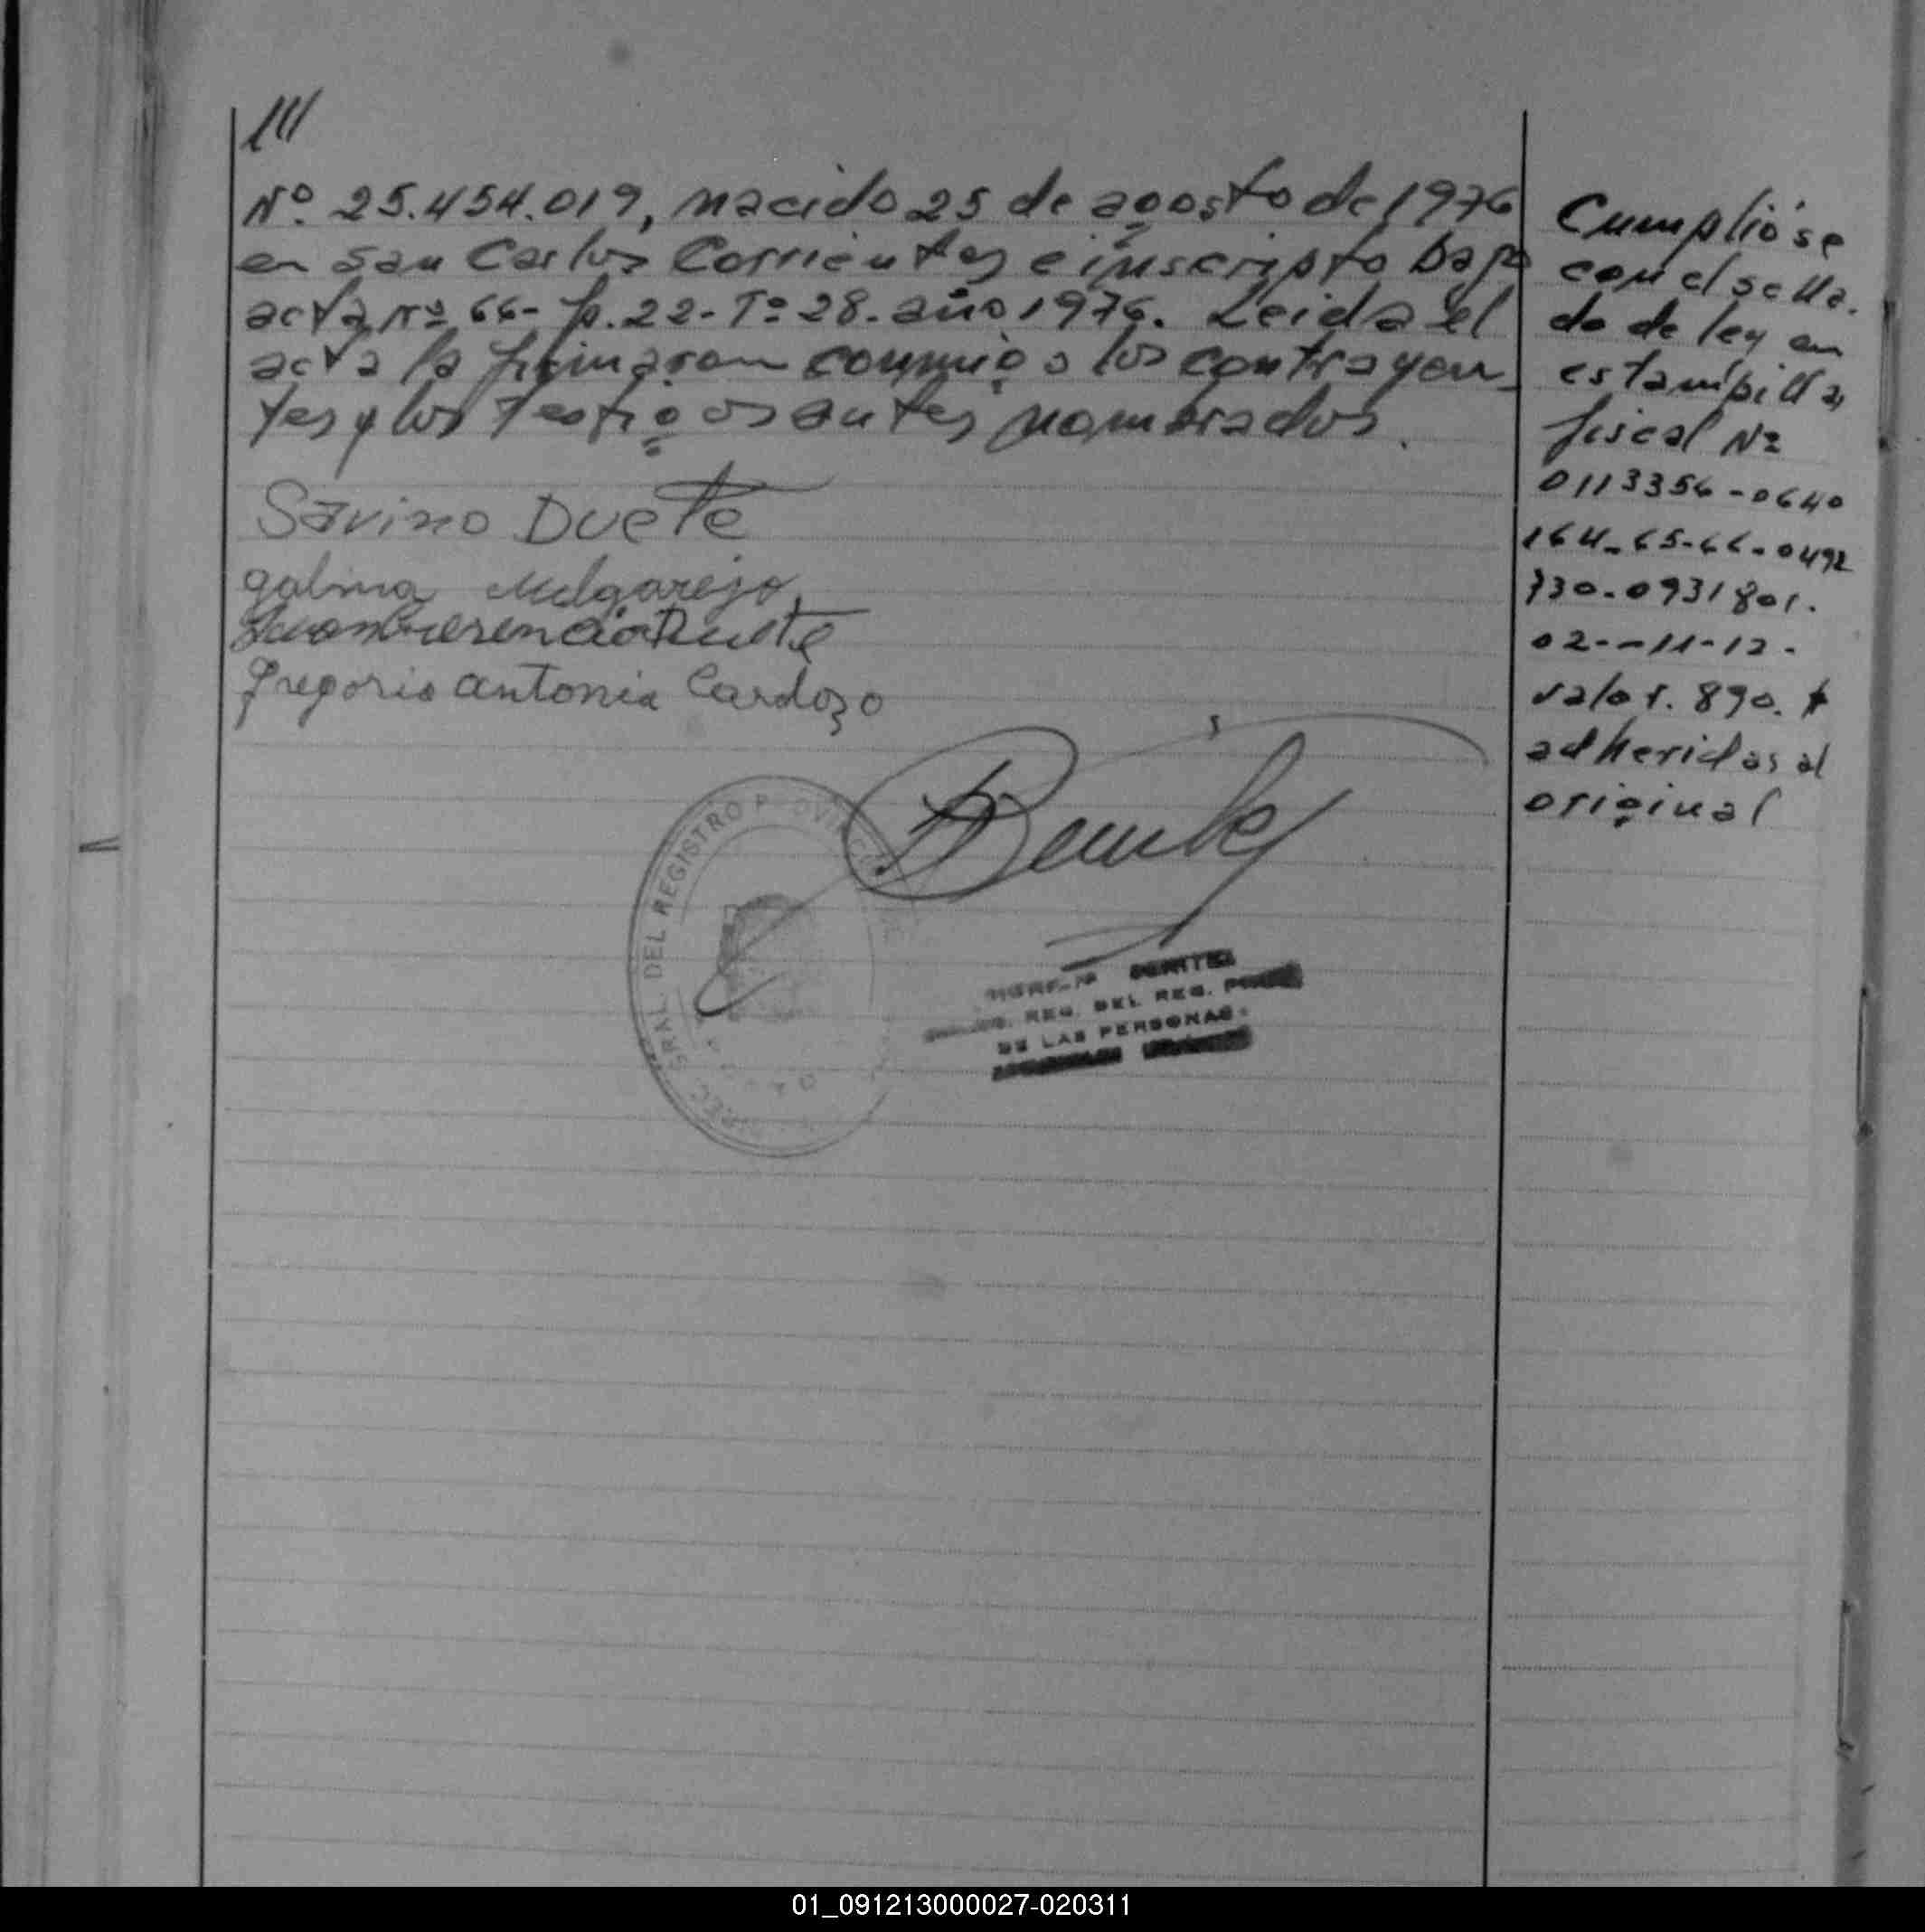 ///
Nº. 25.454.019, nacido 25 de agosto de 1976
en San Carlos Corrientes e inscripto bajo
acta nº 66- fº. 22- Tº 28. año 1976. Leida el
acta la firmaron conmigo los contrayen-
tes y los testigos antes nombrados.
Savino Duete
galina Melgarejo
Duete
Gregoria antonia Cardozo
Benitez
GRAL DEL REGISTRO PROVINCIAL
BENITEZ
REG. DEL REG.
DE LAS PERSONAS
Cumplióse
con el sella.
do de ley en
estampilla,
fiscal Nº
0113356-0640
164-65-66-0492
730-0931801.
02--11-12-
valor. 890. $
adheridas al
original
01_091213000027-020311